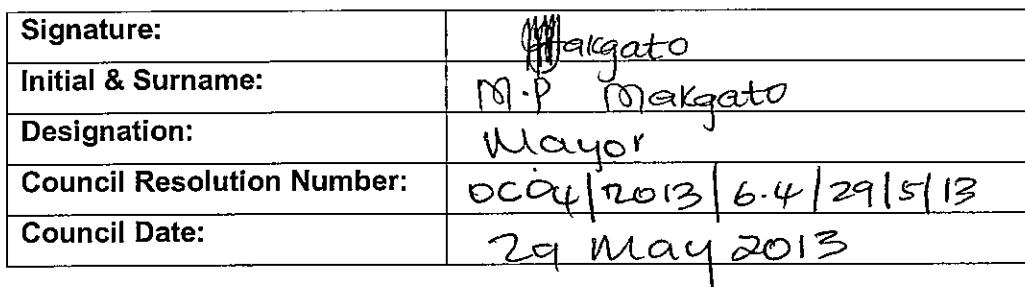 Signature: Makgato
Initial & Surname: M.P Makgato
Designation: Mayor
Council Resolution Number: OC04/2013/6.4/29/5/13
Council Date: 29 May 2013